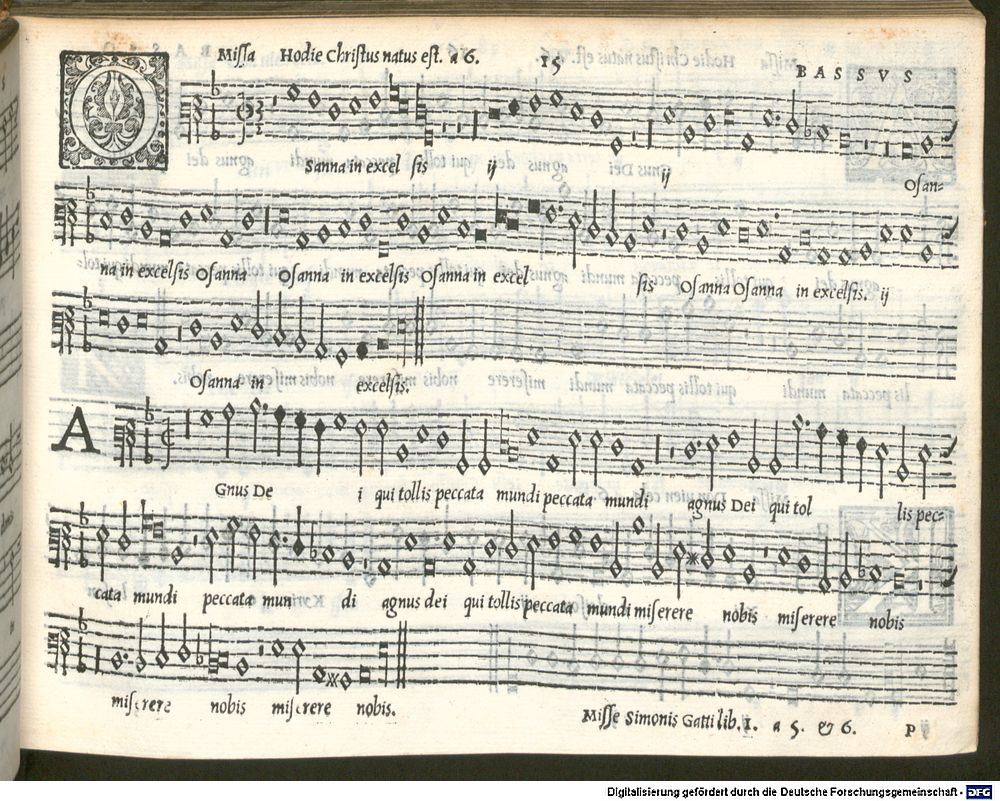 Missa Hodie Christus natus est. a 6. 15 BASSVS
O
Sanna in excel sis ij ij Osan-
na in excelsis Osanna Osanna in excelsis Osanna in excel sis Osanna Osanna in excelsis. ij
Osanna in excelsis.
A
Gnus De i qui tollis peccata mundi peccata mundi agnus Dei qui tol lis pec-
cata mundi peccata mun di agnus dei qui tollis peccata mundi miserere nobis miserere nobis
miserere nobis miserere nobis.
Misse Simonis Gatti lib. I. a 5. & 6. P
Digitalisierung gefördert durch die Deutsche Forschungsgemeinschaft - DFG